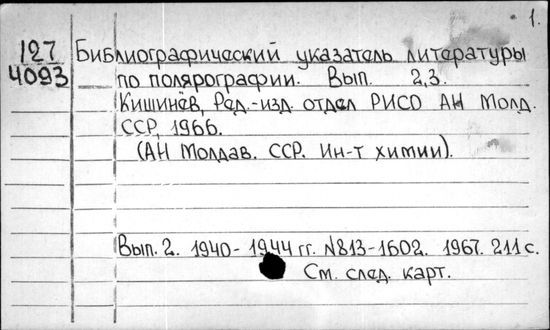 1.
127
4093
Библиографический указатель литературы
по полярографии. Вып. 2,3.
Кишинёв, Ред.-изд. отдел РИСО АН Молд.
ССР, 1966.
(АН Молдав. ССР. Ин-т химии).
Вып. 2. 1940-1944 гг. N813-1602. 1967. 211 с.
См. след. карт.